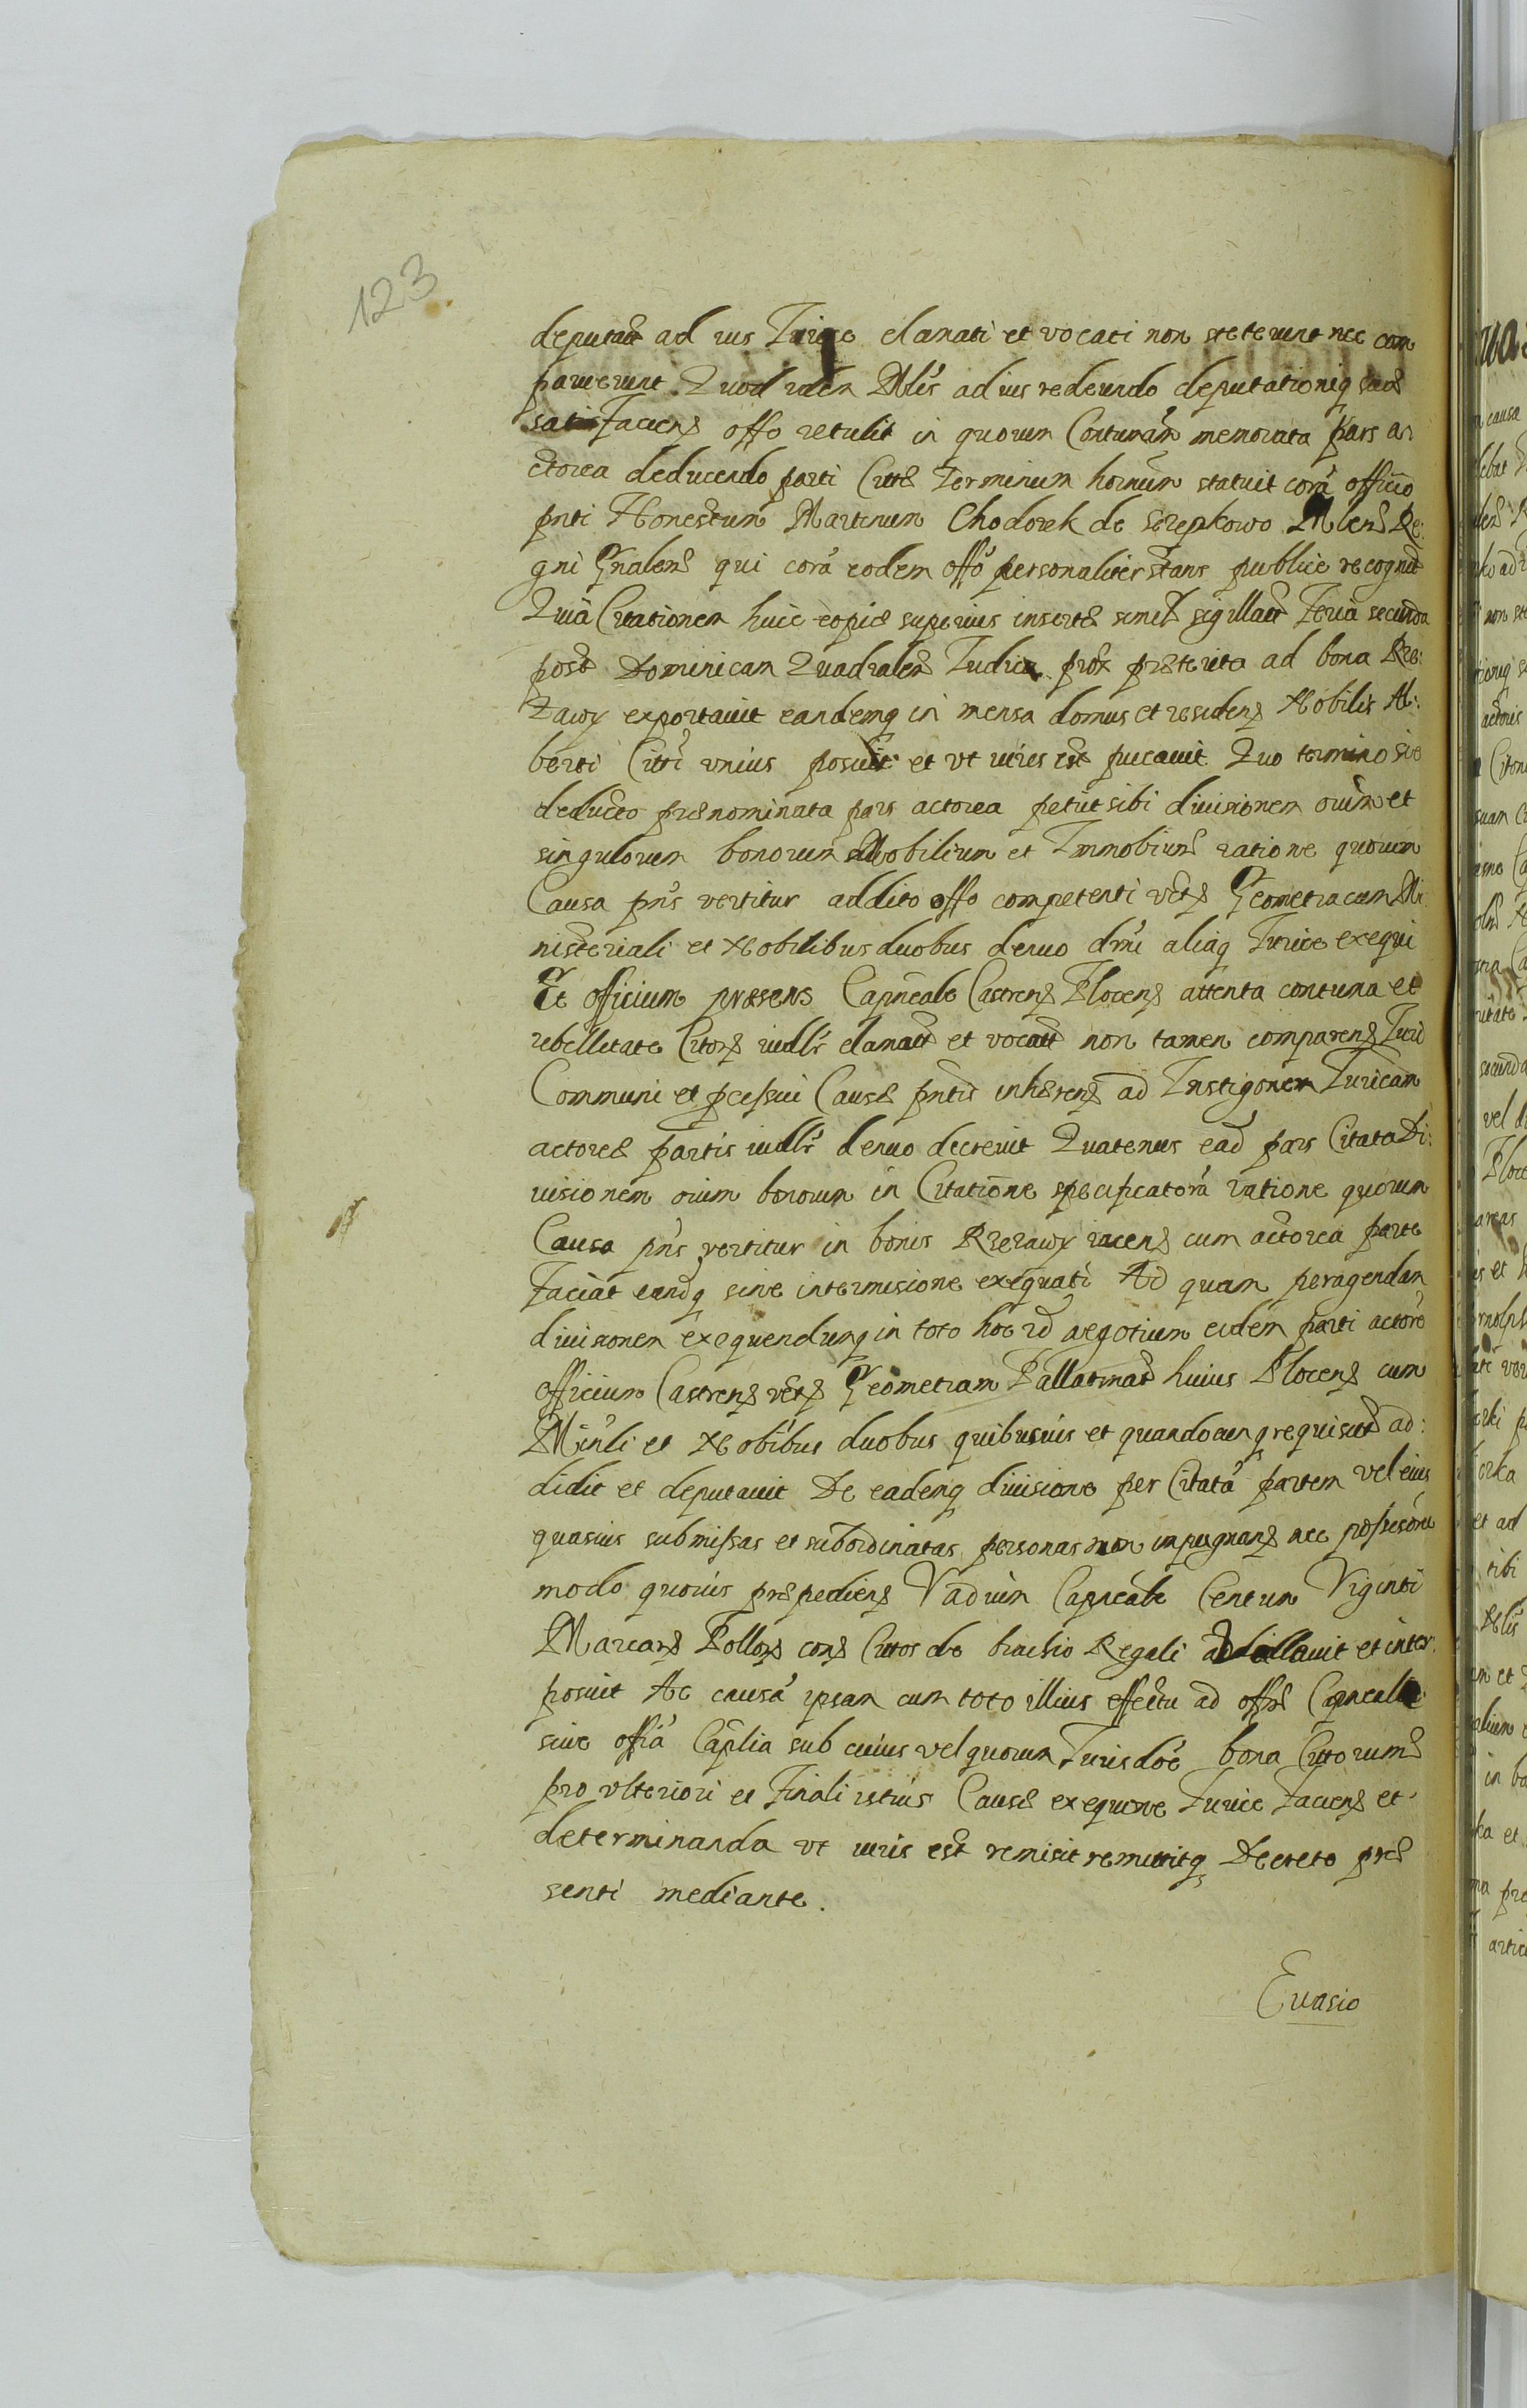 123
deputat ad ius Iurice clamati et vocati non steterunt nec com
paruerunt. Quod idem Mlis ad ius redeundo deputationiq suae
satisfaciens offo retulit in quorum Contumam memorata pars a
ctorea deducendo parti Citte Terminum hornum statuit cora officio
pnti Honestum Martinum Chodorek de Srepkowo Mlem Re:
gni Gnalem qui cora eodem offo personaliter stans publice recognit
Quia Citationem huic copie superius inserte simil sigillat Feria secunda
post Dominicam Quadralem Iudica prox praeterita ad bona Rze:
zawy exportavit eandemq in mensa domus et residens Nobilis Al:
berti Citti unius posuit et ut iuris est pucavit Quo termino sic
deducto praenominata pars actorea petiit sibi divisionem oium et
singulorum bonorum Mobilium et Immobium ratione quorum
Causa pns vertitur addito offo competenti Geometra cum Mi:
nisteriali et Nobilibus duobus denuo dmi aliaq Iurice exequi
Et officium praesens Capneale Castrens Plocens attenta contuma et
rebellitate Citors iudlr clamat et vocat non tamen comparens Iuri
Communi et pcessui Cause pntis inhaerens ad Instigonem Iuricam
actoree partis iudlr denuo decrevit Quatenus ead pars Citata Di:
visionem oium bonorum in Citatione specificatora ratione quorum
Causa pns vertitur in bonis Rzezawy iacens cum actorea parte
Faciat eandq sine intermisione exequati Ad quam peragendam
divisionem exequendumq in toto hoc id negotium eidem parti actore
officium Castrens Geometram Pallatinat huius Plocens cum
Minli et Nobibus duobus quibusvis et quandocunq requisit ad:
didit et deputavit De eademq divisione per Citata partem vel eius
quasvis submissas et subordinatas personas non impugnans nec
modo quovis praepediens Vadium Capneale Centum Viginti
Marcars Pollors cons Citos de brachio Regali et inter:
posuit Ac causa ipsam cum toto illius effectu ad offm Capneale
sive offia Caplia sub cuius vel quorum Iurisdoe bona Citorum
pro ulteriori et Finali istius Cause exequone Iurice Faciens et
determinanda ut iuris est remisit remittitq Decreto prae
senti mediante.
Evasio